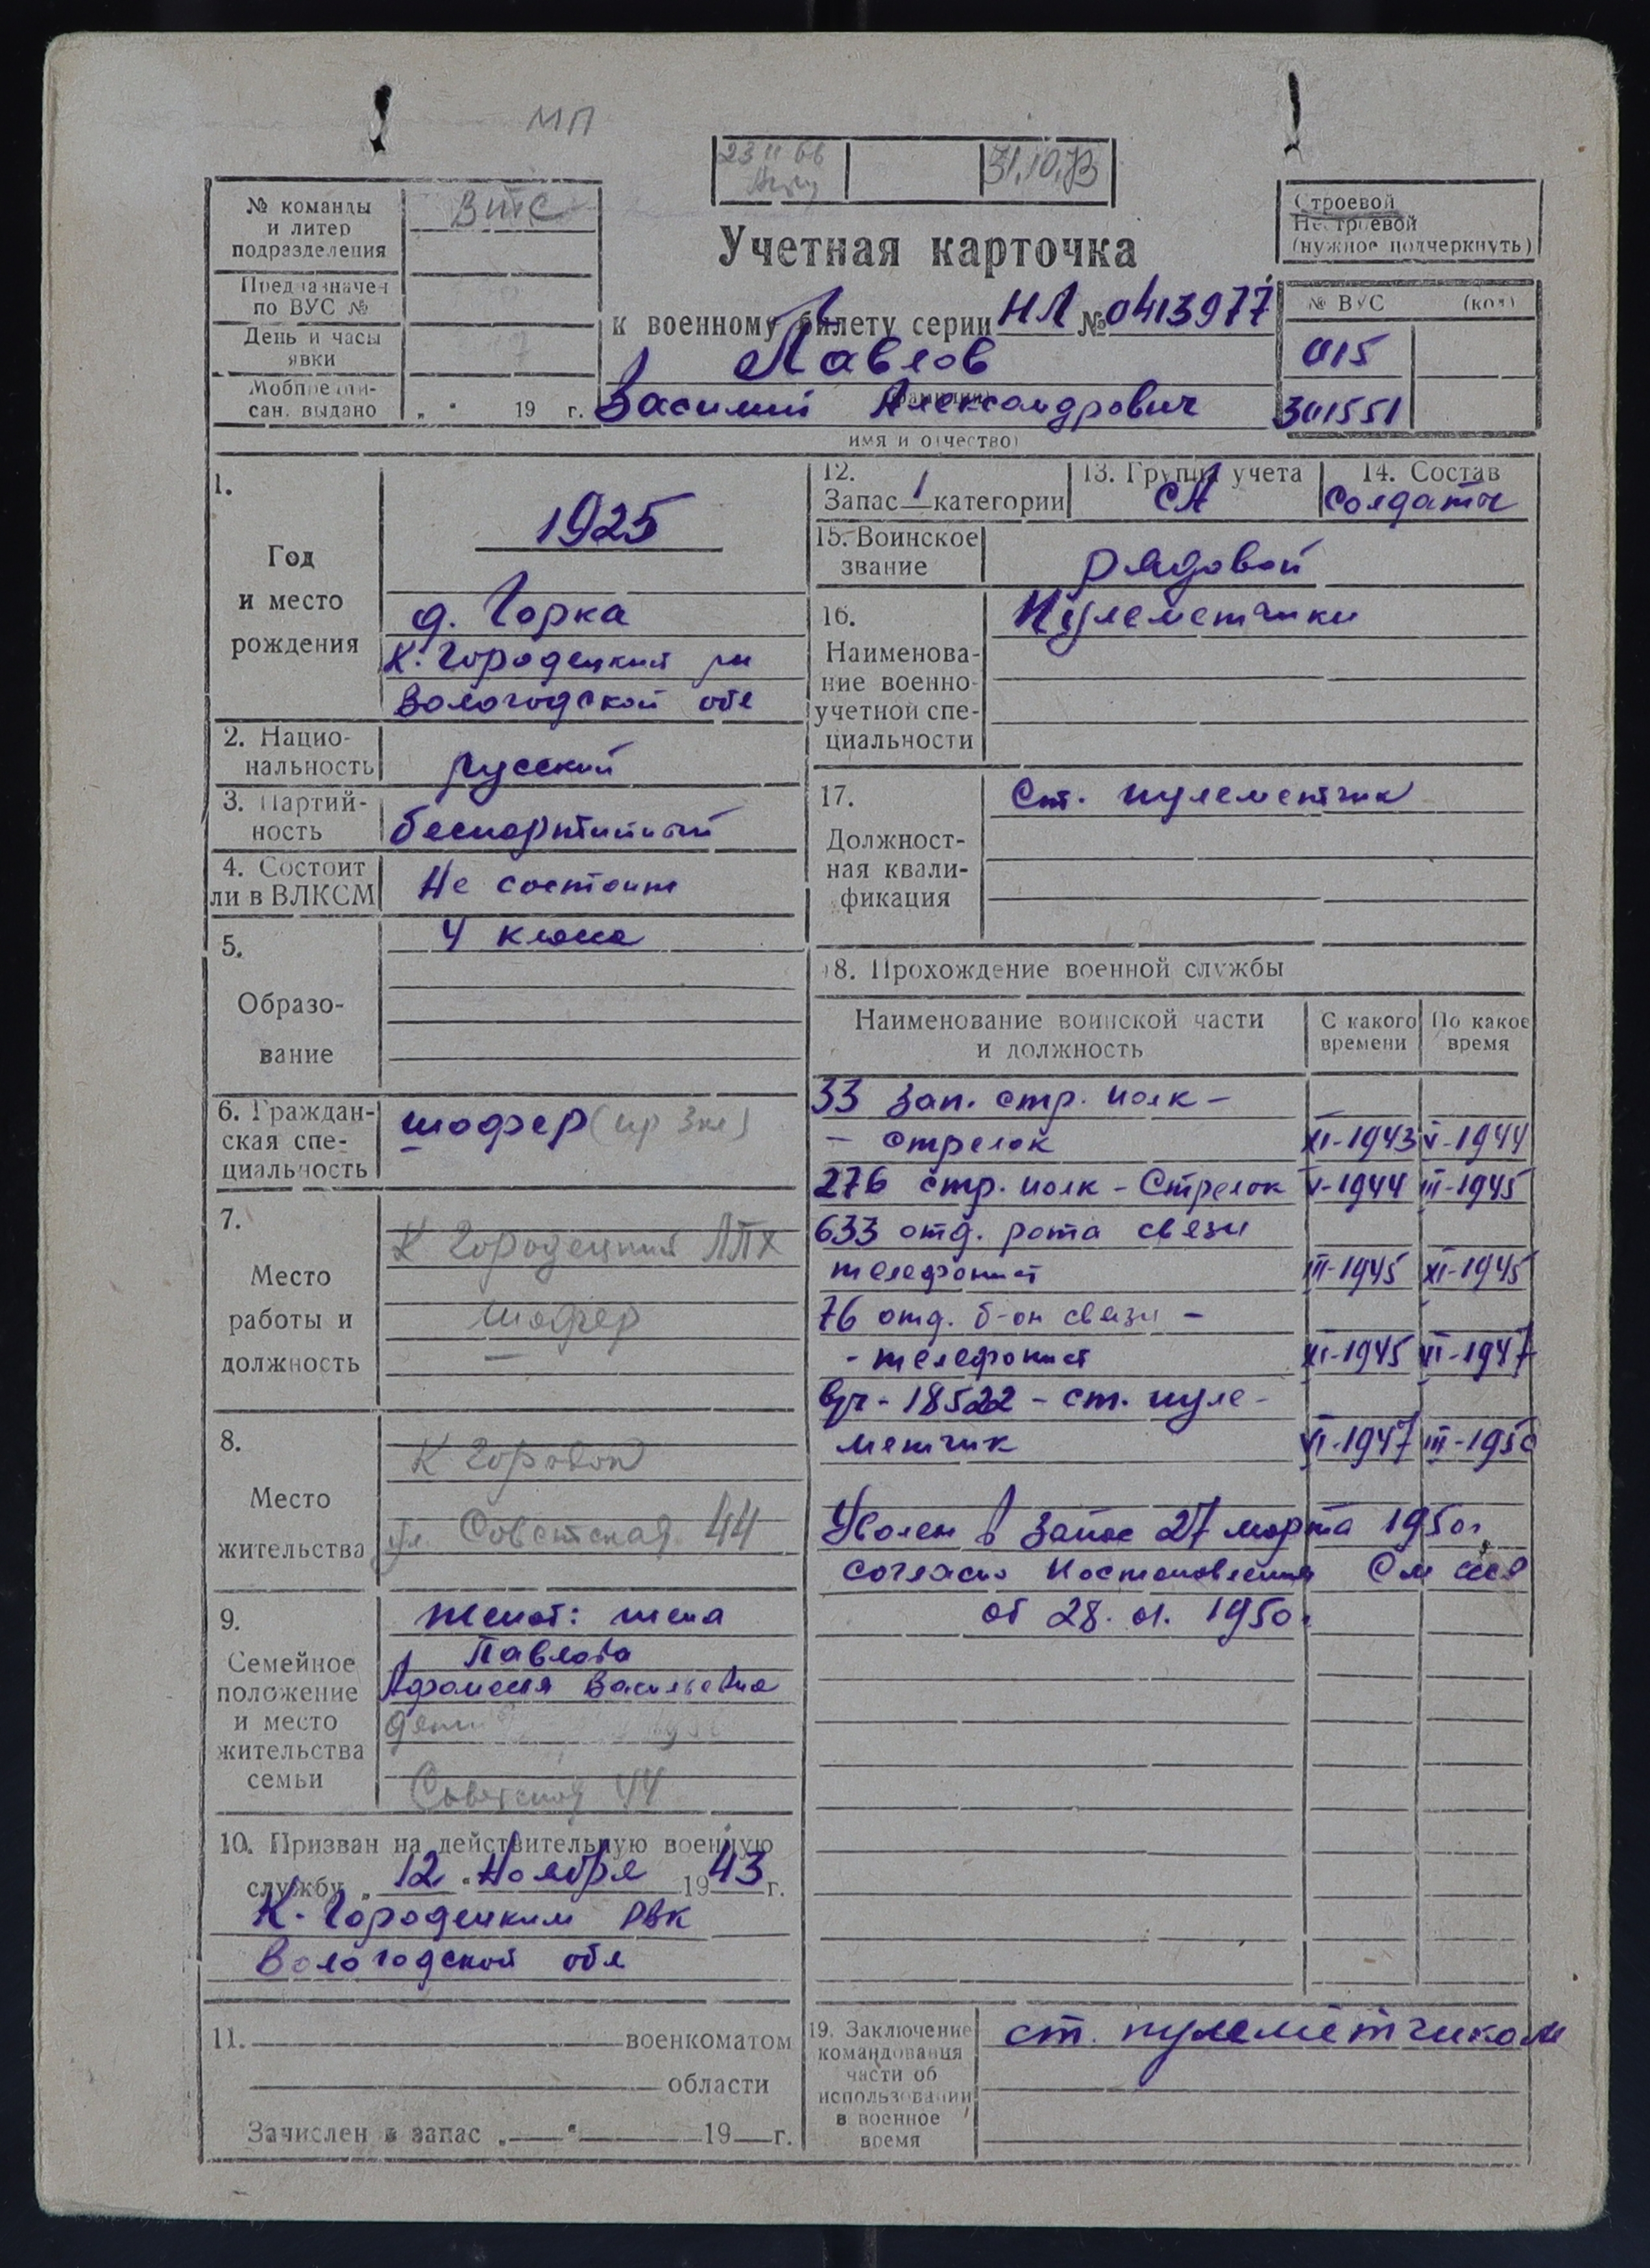 МП
23 11 66
31.10.73
№ команды
и литер
подразделения
Предназначен
по ВУС №
День и часы
явки
Мобпредпи-
сан. выдано „ “ 19 г.
Учетная карточка
к военному билету серии НЛ № 0413977
Павлов
(фамилия)
Василий Александрович
имя и отчество)
Строевой
Нестроевой
(нужное подчеркнуть)
№ ВУС (код)
015
301551
1.
Год
и место
рождения
1925
д. Горка
К. Городецкий рн
Вологодской обл
2. Нацио-
нальность
русский
3. Партий-
ность
беспартийный
4. Состоит
ли в ВЛКСМ
Не состоит
5.
Образо-
вание
4 класса
6. Граждан-
ская спе-
циальность
шофер (пр 3кл)
7.
Место
работы и
должность
К Городецкий ЛПХ
шофер
8.
Место
жительства
К Городок
ул. Советская 44
9.
Семейное
положение
и место
жительства
семьи
женат: жена
Павлова
Афанасия Васильевна
дети
Советская 44
10. Призван на действительную военную
службу „ 12 “ Ноября 1943 г.
К-Городецким РВК
Вологодской обл
11. военкоматом
области
Зачислен в запас „ “ 19 г.
12.
Запас 1 категории
13. Группа учета
СА
14. Состав
Солдаты
15. Воинское
звание
рядовой
16.
Наименова-
ние военно-
учетной спе-
циальности
Пулеметчики
17.
Должност-
ная квали-
фикация
Ст. пулеметчик
18. Прохождение военной службы
Наименование воинской части
и должность
С какого
времени
По какое
время
33 зап. стр. полк -
- стрелок XI-1943 V-1944
276 стр. полк - Стрелок V-1944 III-1945
633 отд. рота связи
телефонист III-1945 XI-1945
76 отд. б-он связи -
- телефонист XI-1945 VI-1947
в/ч - 18522 - ст. пуле-
метчик VI-1947 III-1950
Уволен в запас 27 марта 1950г.
согласно Постановления См ссср
от 28. 01. 1950г
19. Заключение
командования
части об
использовании
в военное
время
ст. пулеметчиком